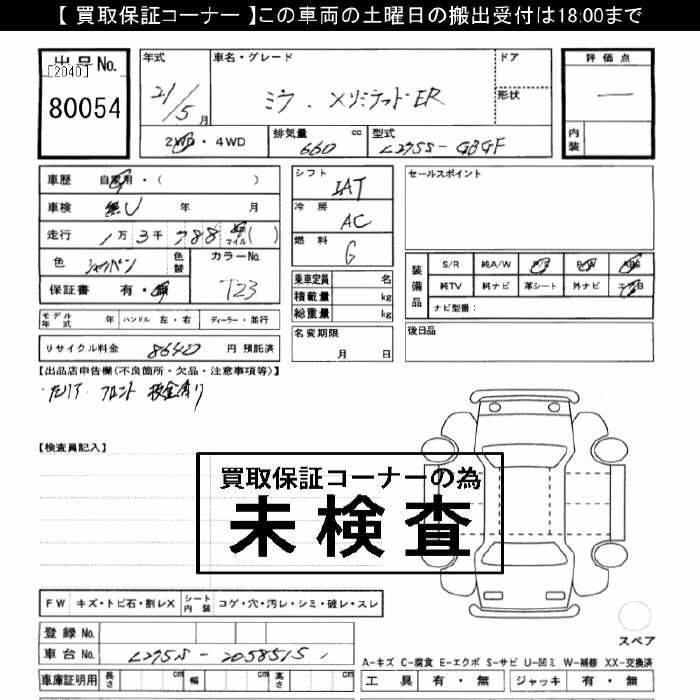 【 買取保証コーナー 】この車両の土曜日の搬出受付は18:00まで
出品No.
[2040]
80054
年式
21/5月
車名・グレード
ミラ . XリミテッドER
ドア
形状
評価点
一
内装
2WD・4WD
排気量 cc
660
型式
L275S-GBGF
車歴 自家用・( )
車検 無し 年 月
走行 1万3千788 km マイル ( )
色 シャンパン 色替
カラーNo.
T23
保証書 有・無
シフト
IAT
冷房
AC
燃料
G
セールスポイント
装備品
S/R 純A/W P/S P/W ABS
純TV 純ナビ 革シート 外ナビ エア B
ナビ型番:
乗車定員 名
積載量 kg
総重量 kg
モデル年式 年 ハンドル 左・右 ディーラー・並行
名変期限
月 日
後日品
リサイクル料金 8640 円 預託済
【出品店申告欄(不良箇所・欠品・注意事項等)】
フロント 板金有り
【検査員記入】
買取保証コーナーの為
未検査
FW キズ・トビ石・割レX シート内装 コゲ・穴・汚レ・シミ・破レ・スレ
登録No.
車台No. L275S-2058515
車庫証明用 長さ cm 幅 cm 高さ cm
スペア
A-キズ C-腐食 E-エクボ S-サビ U-凹ミ W-補修 XX-交換済
工具 有・無 ジャッキ 有・無